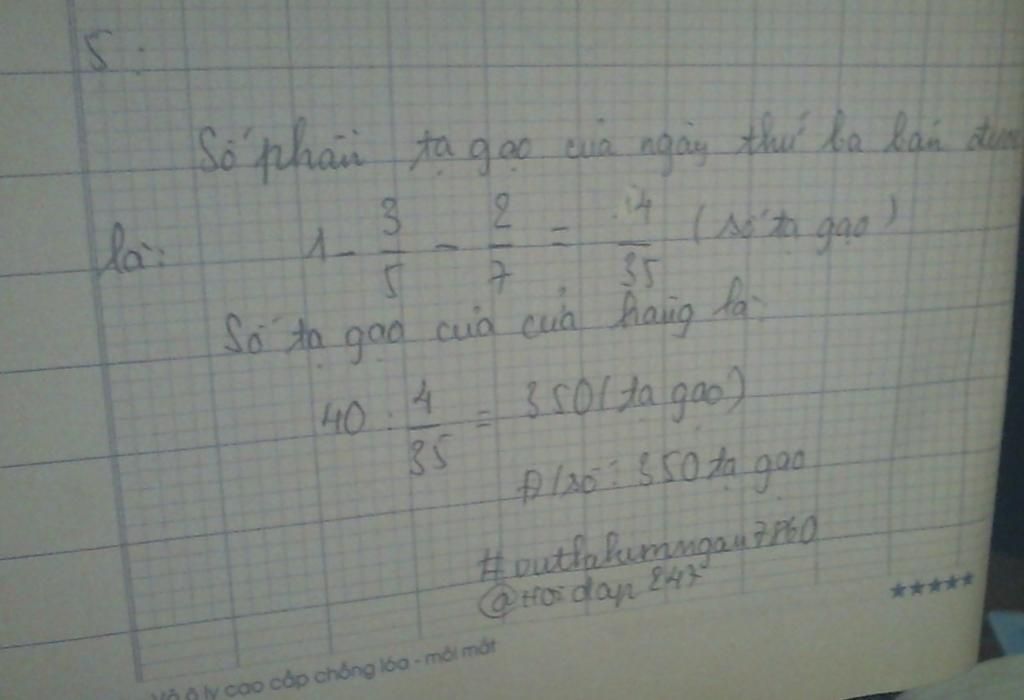 5:
Số phần tạ gạo của ngày thứ ba bán
là: 1 - 3/5 - 2/7 = 4/35 (số tạ gạo)
Số tạ gạo của cửa hàng là:
40 : 4/35 = 350 (tạ gạo)
Đ/số: 350 tạ gạo
@Hoidap247
★★★★★
Vở ô ly cao cấp chống lóa - mỏi mắt